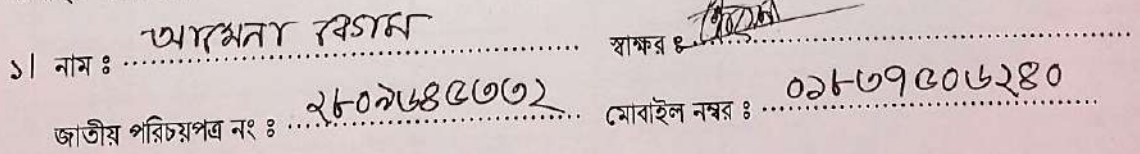 ১। নাম ঃ আমেনা বেগম স্বাক্ষর ঃ
জাতীয় পরিচয়পত্র নং ঃ ২৮০৯৬৪৫৭৭২ মোবাইল নম্বর ঃ ০১৮৭৭৫০৬২৪০